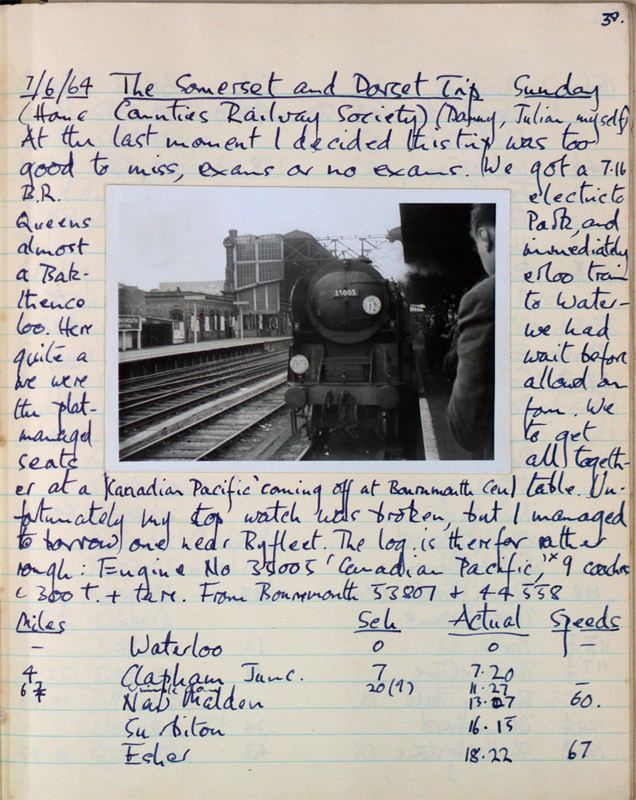 39.
7/6/64 The Somerset and Dorset Trip Sunday
(Home Counties Railway Society) (Danny, Julian, myself)
At the last moment I decided this trip was too
good to miss, exams or no exams. We got a 7.16
B.R. electric to
Queens Park, and
almost immediately
a Bak- erloo train
thence to Water-
loo. Here we had
quite a wait before
we were allowd on
the plat- form. We
managed to get
seats all togeth-
er at a table. Un-
'Canadian Pacific' coming off at Bournmouth Cen
fortunately my stop watch was broken, but I managed
to borrow one near Byfleet. The log is therefor rather
rough: Engine No 35005 'Canadian Pacific,' x 9 coaches
c 300 t. + tare. From Bournmouth 53807 & 44558
Miles Sch Actual Speeds
– Waterloo 0 0 –
4 Clapham Junc. 7 7.20 –
6¾ 20(?) 11.27
New Malden 13.27 60.
Surbiton 16.15
Esher 18.22 67
35005
12
BOURNEMOUTH
CENTRAL